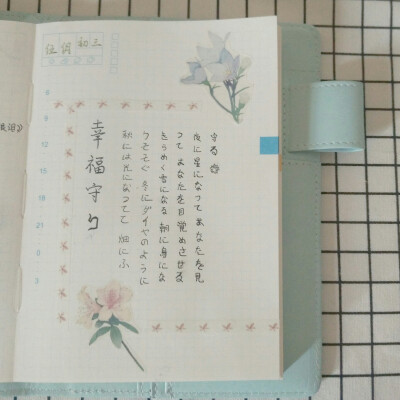 初三
幸福守り
秋には光になってて 畑にふ
りそそぐ 冬にダイヤのように
きらめく雪になる 朝に鳥にな
って あなたを目覚めさせる
夜に星になってあなたを見
守る
12
18
21